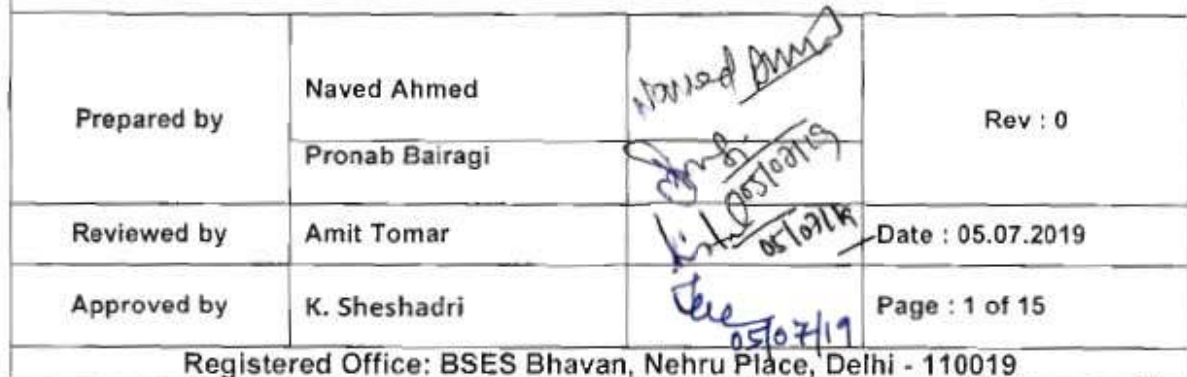 Prepared by
Naved Ahmed
Naved
Rev : 0
Pronab Bairagi
05/07/19
Reviewed by
Amit Tomar
05/07/19
Date : 05.07.2019
Approved by
K. Sheshadri
05/07/19
Page : 1 of 15
Registered Office: BSES Bhavan, Nehru Place, Delhi - 110019